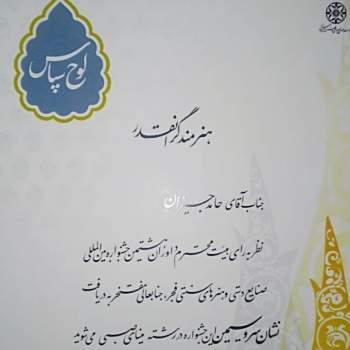 لوح سپاس
هنرمند گرانقدر
جناب آقای حامد
نظر به رای هیئت محترم داوران هشتمین جشنواره بین المللی
صنایع دستی و هنرهای سنتی فجر، جنابعالی مفتخر به دریافت
نشان سرو سیمین این جشنواره در رشته می شوید